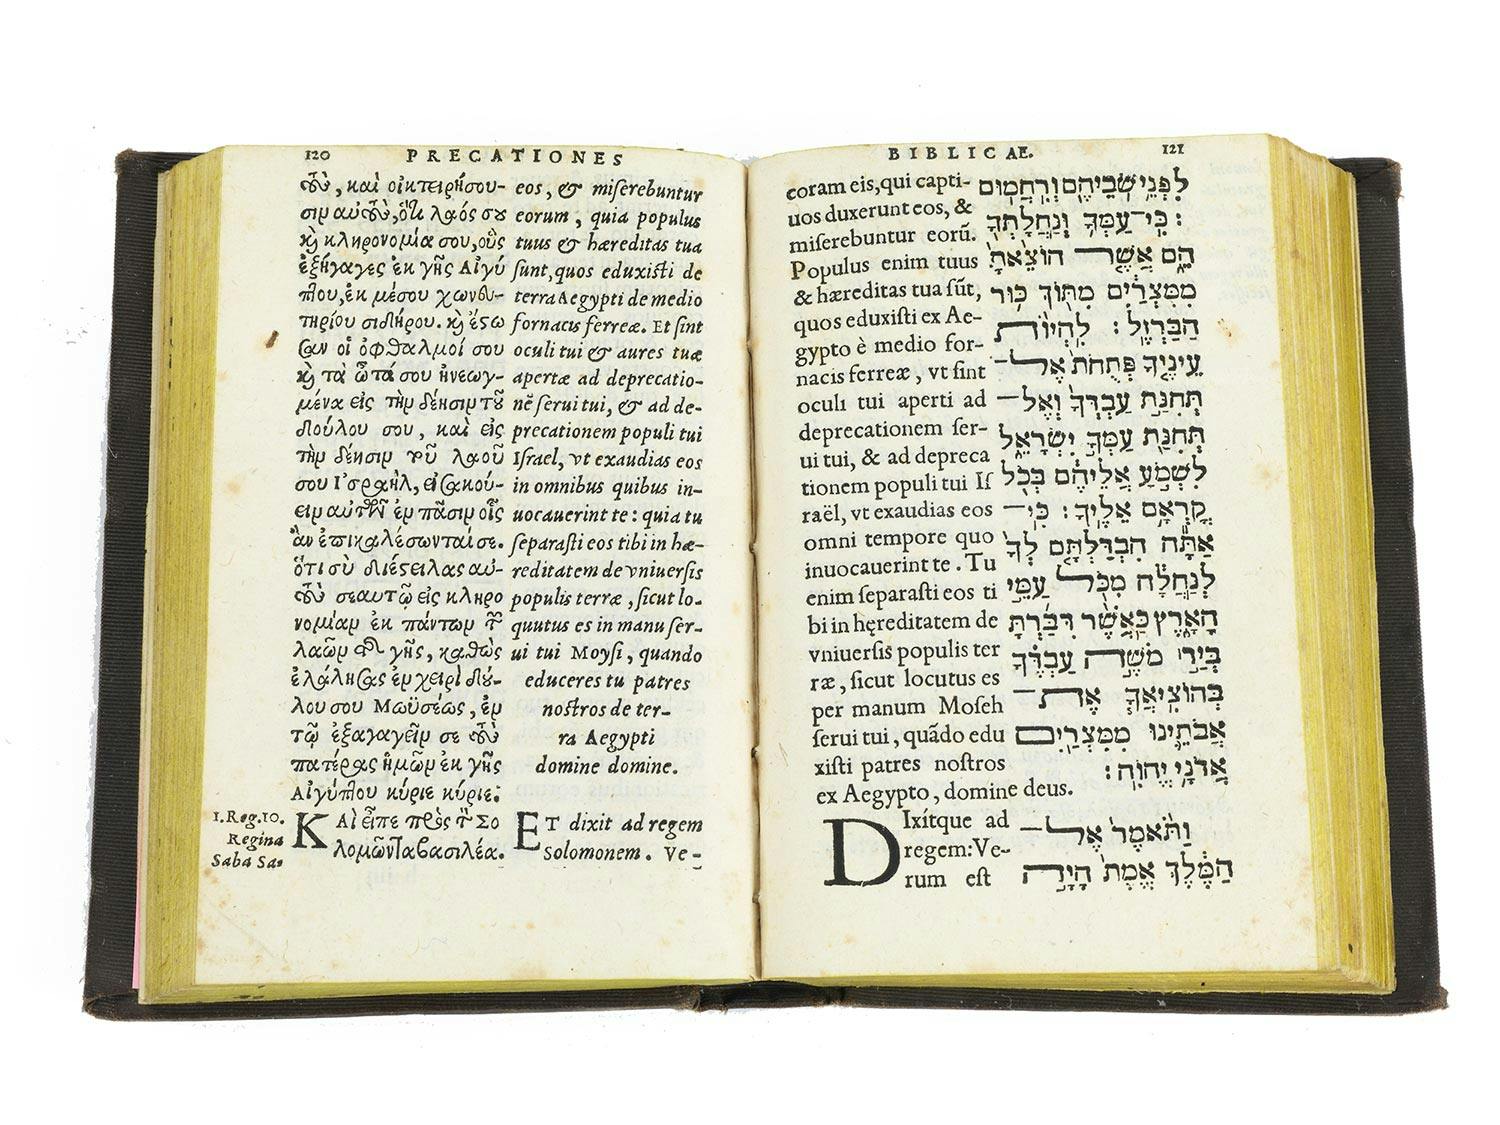 120 PRECATIONES
οὺς, καὶ οἰκτειρήσου-
σιν αὐτοὺς, ὅτι λαός σου
καὶ κληρονομία σου, οὓς
ἐξήγαγες ἐκ γῆς Αἰγύ
πτου, ἐκ μέσου χωνευ-
τηρίου σιδήρου. καὶ ἔστω
σαν οἱ ὀφθαλμοί σου
καὶ τὰ ὦτά σου ἠνεῳγ-
μένα εἰς τὴν δέησιν τοῦ
δούλου σου, καὶ εἰς
τὴν δέησιν τοῦ λαοῦ
σου Ἰσραὴλ, εἰσακού-
ειν αὐτῶν ἐν πᾶσιν οἷς
ἂν ἐπικαλέσωνταί σε.
ὅτι σὺ διέστειλας αὐ-
τοὺς σεαυτῷ εἰς κληρο
νομίαν ἐκ πάντων τῶν
λαῶν τῆς γῆς, καθὼς
ἐλάλησας ἐν χειρὶ δού-
λου σου Μωϋσέως, ἐν
τῷ ἐξαγαγεῖν σε τοὺς
πατέρας ἡμῶν ἐκ γῆς
Αἰγύπτου κύριε κύριε.
1.Reg.10.
Regina
Saba Sa-
ΚΑὶ εἶπε πρὸς τὸν Σο
λομῶντα βασιλέα.
eos, & miserebuntur
eorum, quia populus
tuus & hæreditas tua
sunt, quos eduxisti de
terra Aegypti de medio
fornacis ferreæ. Et sint
oculi tui & aures tuæ
apertæ ad deprecatio-
nē serui tui, & ad de-
precationem populi tui
Israel, vt exaudias eos
in omnibus quibus in-
uocauerint te: quia tu
separasti eos tibi in hæ-
reditatem de vniuersis
populis terræ, sicut lo-
quutus es in manu ser-
ui tui Moysi, quando
educeres tu patres
nostros de ter-
ra Aegypti
domine domine.
ET dixit ad regem
Solomonem. Ve-
BIBLICAE. 121
coram eis, qui capti-
uos duxerunt eos, &
miserebuntur eorū.
Populus enim tuus
& hæreditas tua sūt,
quos eduxisti ex Ae-
gypto è medio for-
nacis ferreæ, vt sint
oculi tui aperti ad
deprecationem ser-
ui tui, & ad depreca
tionem populi tui Is
raël, vt exaudias eos
omni tempore quo
inuocauerint te. Tu
enim separasti eos ti
bi in hęreditatem de
vniuersis populis ter
ræ, sicut locutus es
per manum Moseh
serui tui, quādo edu
xisti patres nostros
ex Aegypto, domine deus.
DIxítque ad
regem: Ve-
rum est
לִפְנֵי שֹׁבֵיהֶם וְרִחֲמוּם
: כִּי־עַמְּךָ וְנַחֲלָתְךָ
הֵם אֲשֶׁר הוֹצֵאתָ
מִמִּצְרַיִם מִתּוֹךְ כּוּר
הַבַּרְזֶל: לִהְיוֹת
עֵינֶיךָ פְתֻחֹת אֶל־
תְּחִנַּת עַבְדְּךָ וְאֶל־
תְּחִנַּת עַמְּךָ יִשְׂרָאֵל
לִשְׁמֹעַ אֲלֵיהֶם בְּכֹל
קָרְאָם אֵלֶיךָ: כִּי־
אַתָּה הִבְדַּלְתָּם לְךָ
לְנַחֲלָה מִכֹּל עַמֵּי
הָאָרֶץ כַּאֲשֶׁר דִּבַּרְתָּ
בְּיַד מֹשֶׁה עַבְדֶּךָ
בְּהוֹצִיאֲךָ אֶת־
אֲבֹתֵינוּ מִמִּצְרַיִם
אֲדֹנָי יֱהֹוִה:
וַתֹּאמֶר אֶל־
הַמֶּלֶךְ אֱמֶת הָיָה